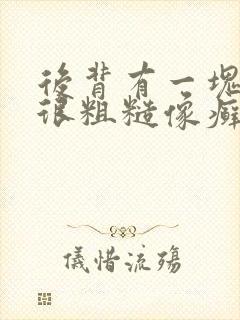 後背有一塊
很粗糙像癬
儀惜流殤